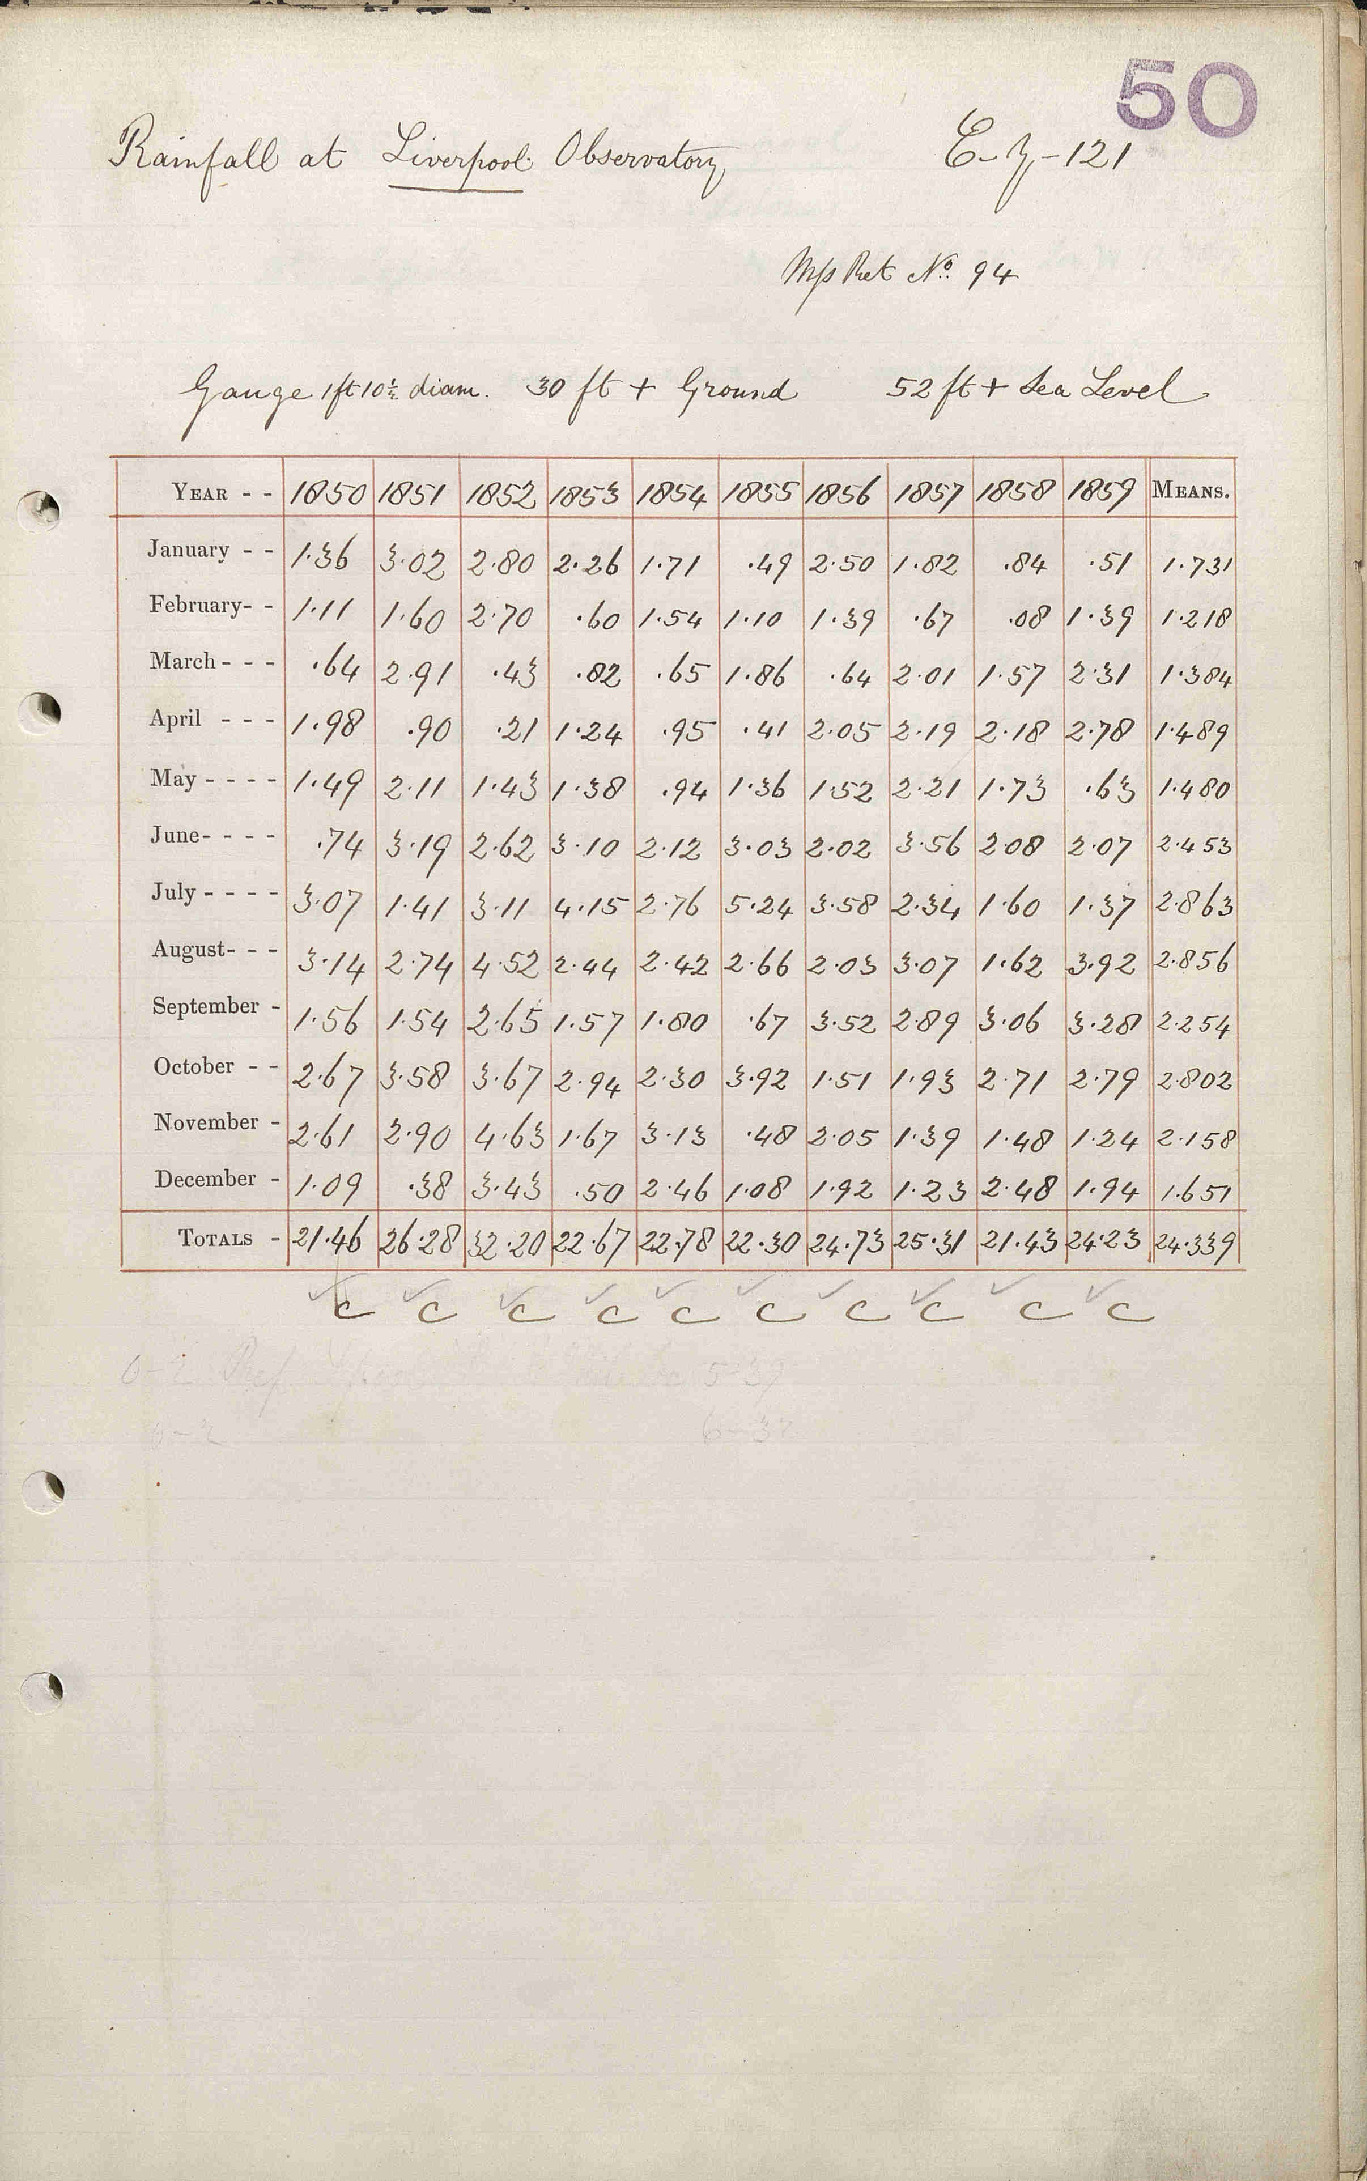 50
Rainfall at Liverpool Observatory
-121
Ret No. 94
Gauge 1ft 10½ diam. 30 ft + Ground 52 ft + Sea Level
YEAR - - 1850 1851 1852 1853 1854 1855 1856 1857 1858 1859 MEANS.
January - - 1.36 3.02 2.80 2.26 1.71 .49 2.50 1.82 .84 .51 1.731
February- - 1.11 1.60 2.70 .60 1.54 1.10 1.39 .67 .08 1.39 1.218
March - - - .64 2.91 .43 .82 .65 1.86 .64 2.01 1.57 2.31 1.384
April - - - 1.98 .90 .21 1.24 .95 .41 2.05 2.19 2.18 2.78 1.489
May - - - - 1.49 2.11 1.43 1.38 .94 1.36 1.52 2.21 1.73 .63 1.480
June- - - - .74 3.19 2.62 3.10 2.12 3.03 2.02 3.56 2.08 2.07 2.453
July - - - - 3.07 1.41 3.11 4.15 2.76 5.24 3.58 2.34 1.60 1.37 2.863
August- - - 3.14 2.74 4.52 2.44 2.42 2.66 2.03 3.07 1.62 3.92 2.856
September - 1.56 1.54 2.65 1.57 1.80 .67 3.52 2.89 3.06 3.28 2.254
October - - 2.67 3.58 3.67 2.94 2.30 3.92 1.51 1.93 2.71 2.79 2.802
November - 2.61 2.90 4.63 1.67 3.13 .48 2.05 1.39 1.48 1.24 2.158
December - 1.09 .38 3.43 .50 2.46 1.08 1.92 1.23 2.48 1.94 1.651
TOTALS - 21.46 26.28 32.20 22.67 22.78 22.30 24.73 25.31 21.43 24.23 24.339
C C C C C C C C C C